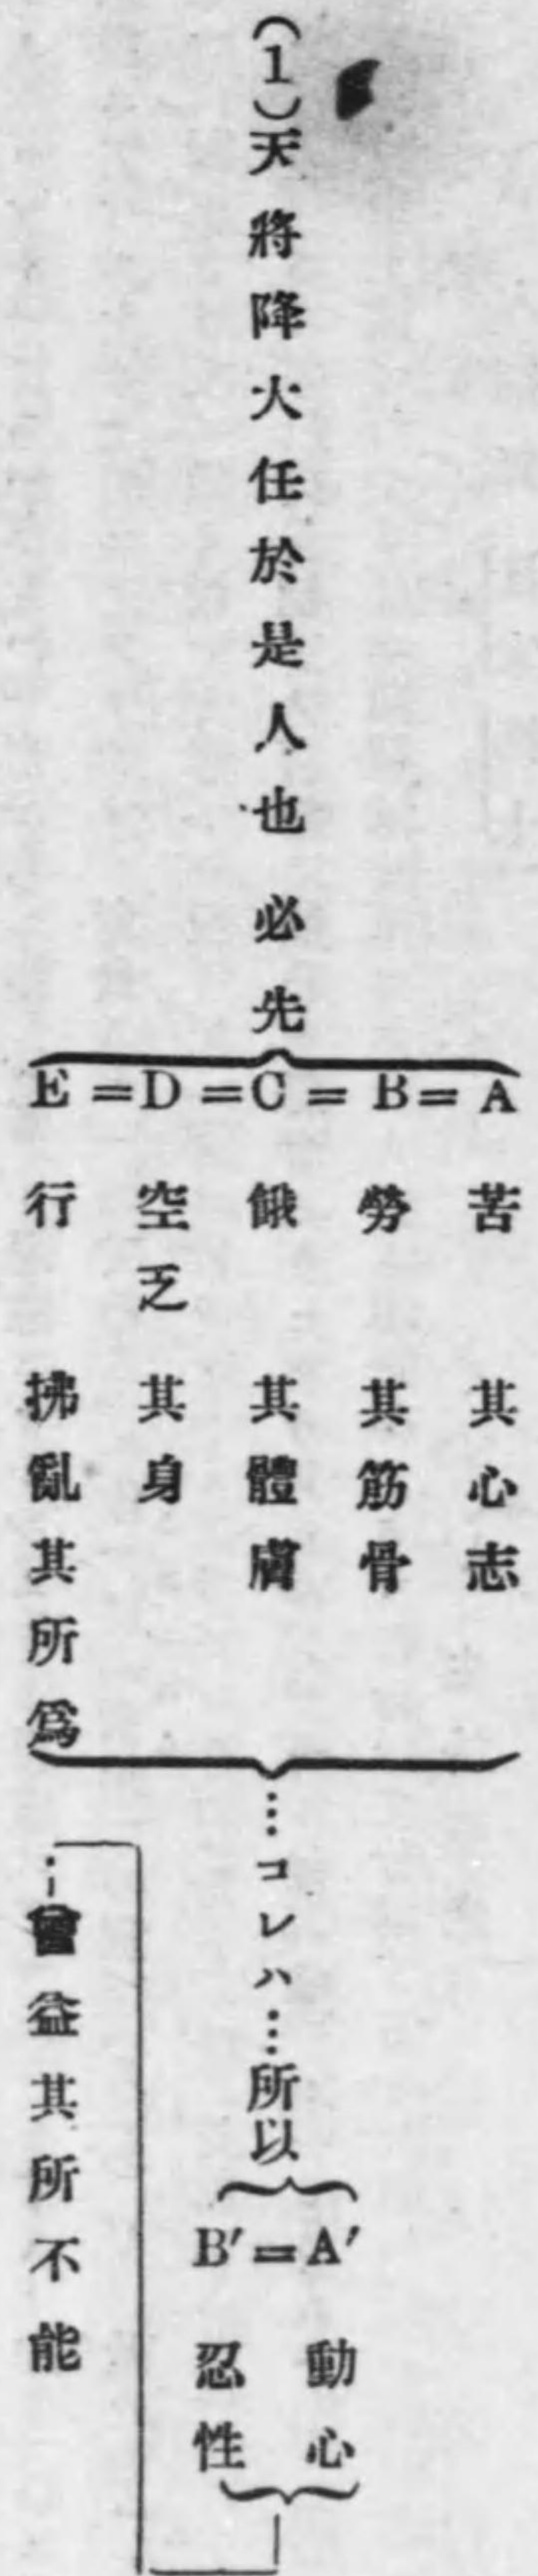 (1)天將降火任於是人也 必先
A=B=C=D=E
苦 其心志
勞 其筋骨
餓 其體膚
空乏 其身
行 拂亂其所爲
…コレハ…所以
A′=B′
動心
忍性
…曾益其所不能